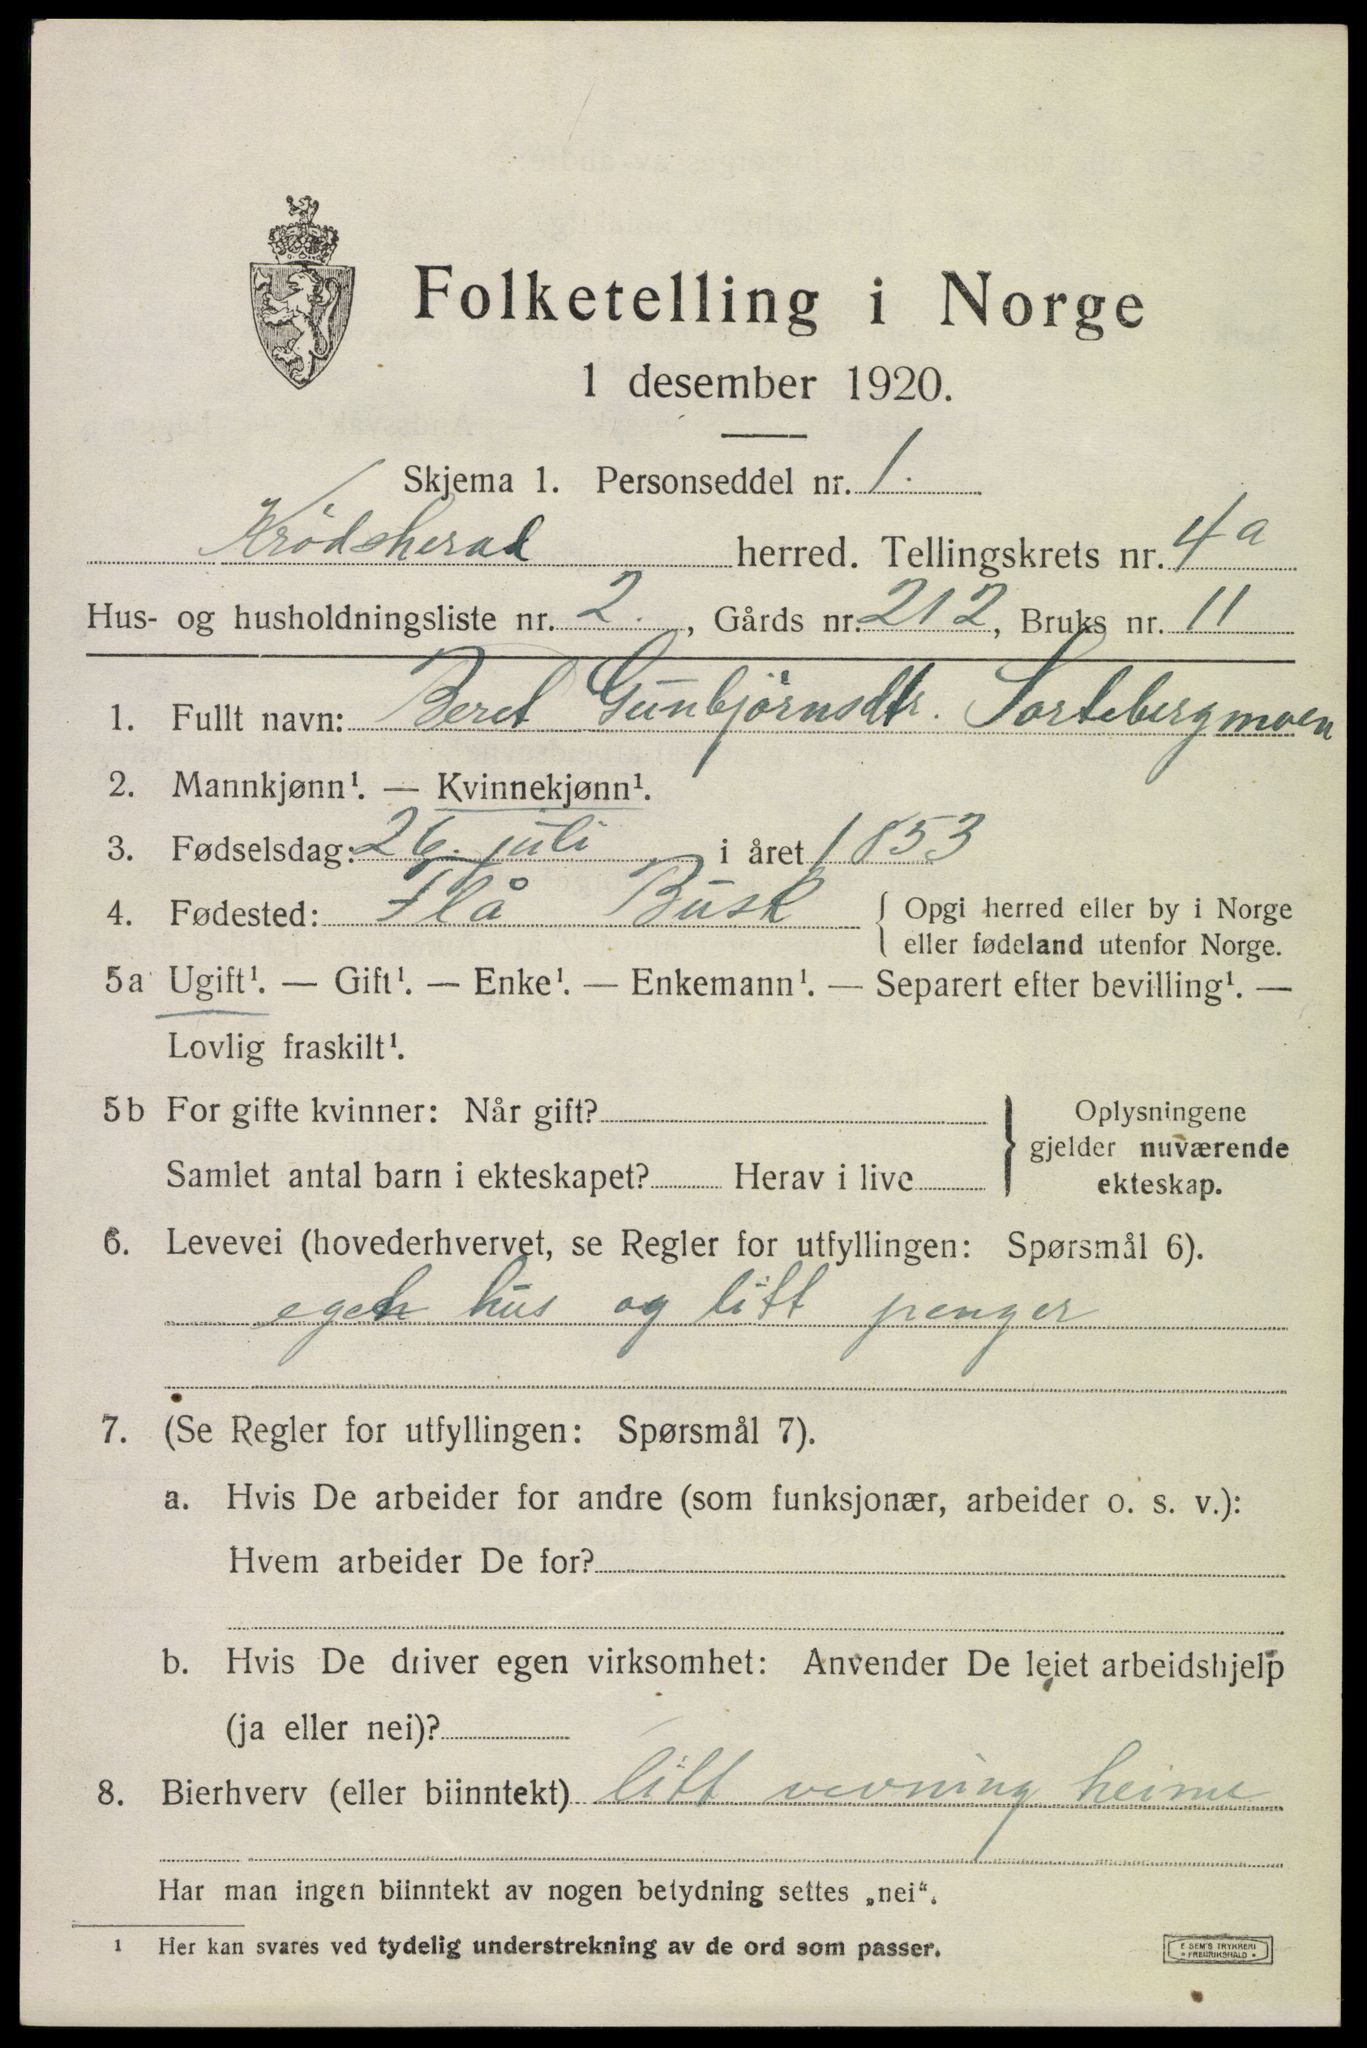 Folketelling i Norge
1 desember 1920.
Skjema 1. Personseddel nr. 1.
Krödsherad herred. Tellingskrets nr. 4a
Hus- og husholdningsliste nr. 2., Gårds nr. 212, Bruks nr. 11
1. Fullt navn: Beret Gunbjörnsdtr. Sortebergmoen
2. Mannkjønn¹. — Kvinnekjønn¹.
3. Fødselsdag: 26. juli i året 1853
4. Fødested: Flå Busk { Opgi herred eller by i Norge
eller fødeland utenfor Norge.
5a Ugift¹. — Gift¹. — Enke¹. — Enkemann¹. — Separert efter bevilling¹. —
Lovlig fraskilt¹.
5b For gifte kvinner: Når gift?
Samlet antal barn i ekteskapet? Herav i live
} Oplysningene
gjelder nuværende
ekteskap.
6. Levevei (hovederhvervet, se Regler for utfyllingen: Spørsmål 6).
egen hus og litt penger
7. (Se Regler for utfyllingen: Spørsmål 7).
a. Hvis De arbeider for andre (som funksjonær, arbeider o. s. v.):
Hvem arbeider De for?
b. Hvis De driver egen virksomhet: Anvender De leiet arbeidshjelp
(ja eller nei)?
8. Bierhverv (eller biinntekt) litt vevning heime
Har man ingen biinntekt av nogen betydning settes „nei“.
¹ Her kan svares ved tydelig understrekning av de ord som passer.
E SEM'S TRYKKERI
FREDRIKSHALD